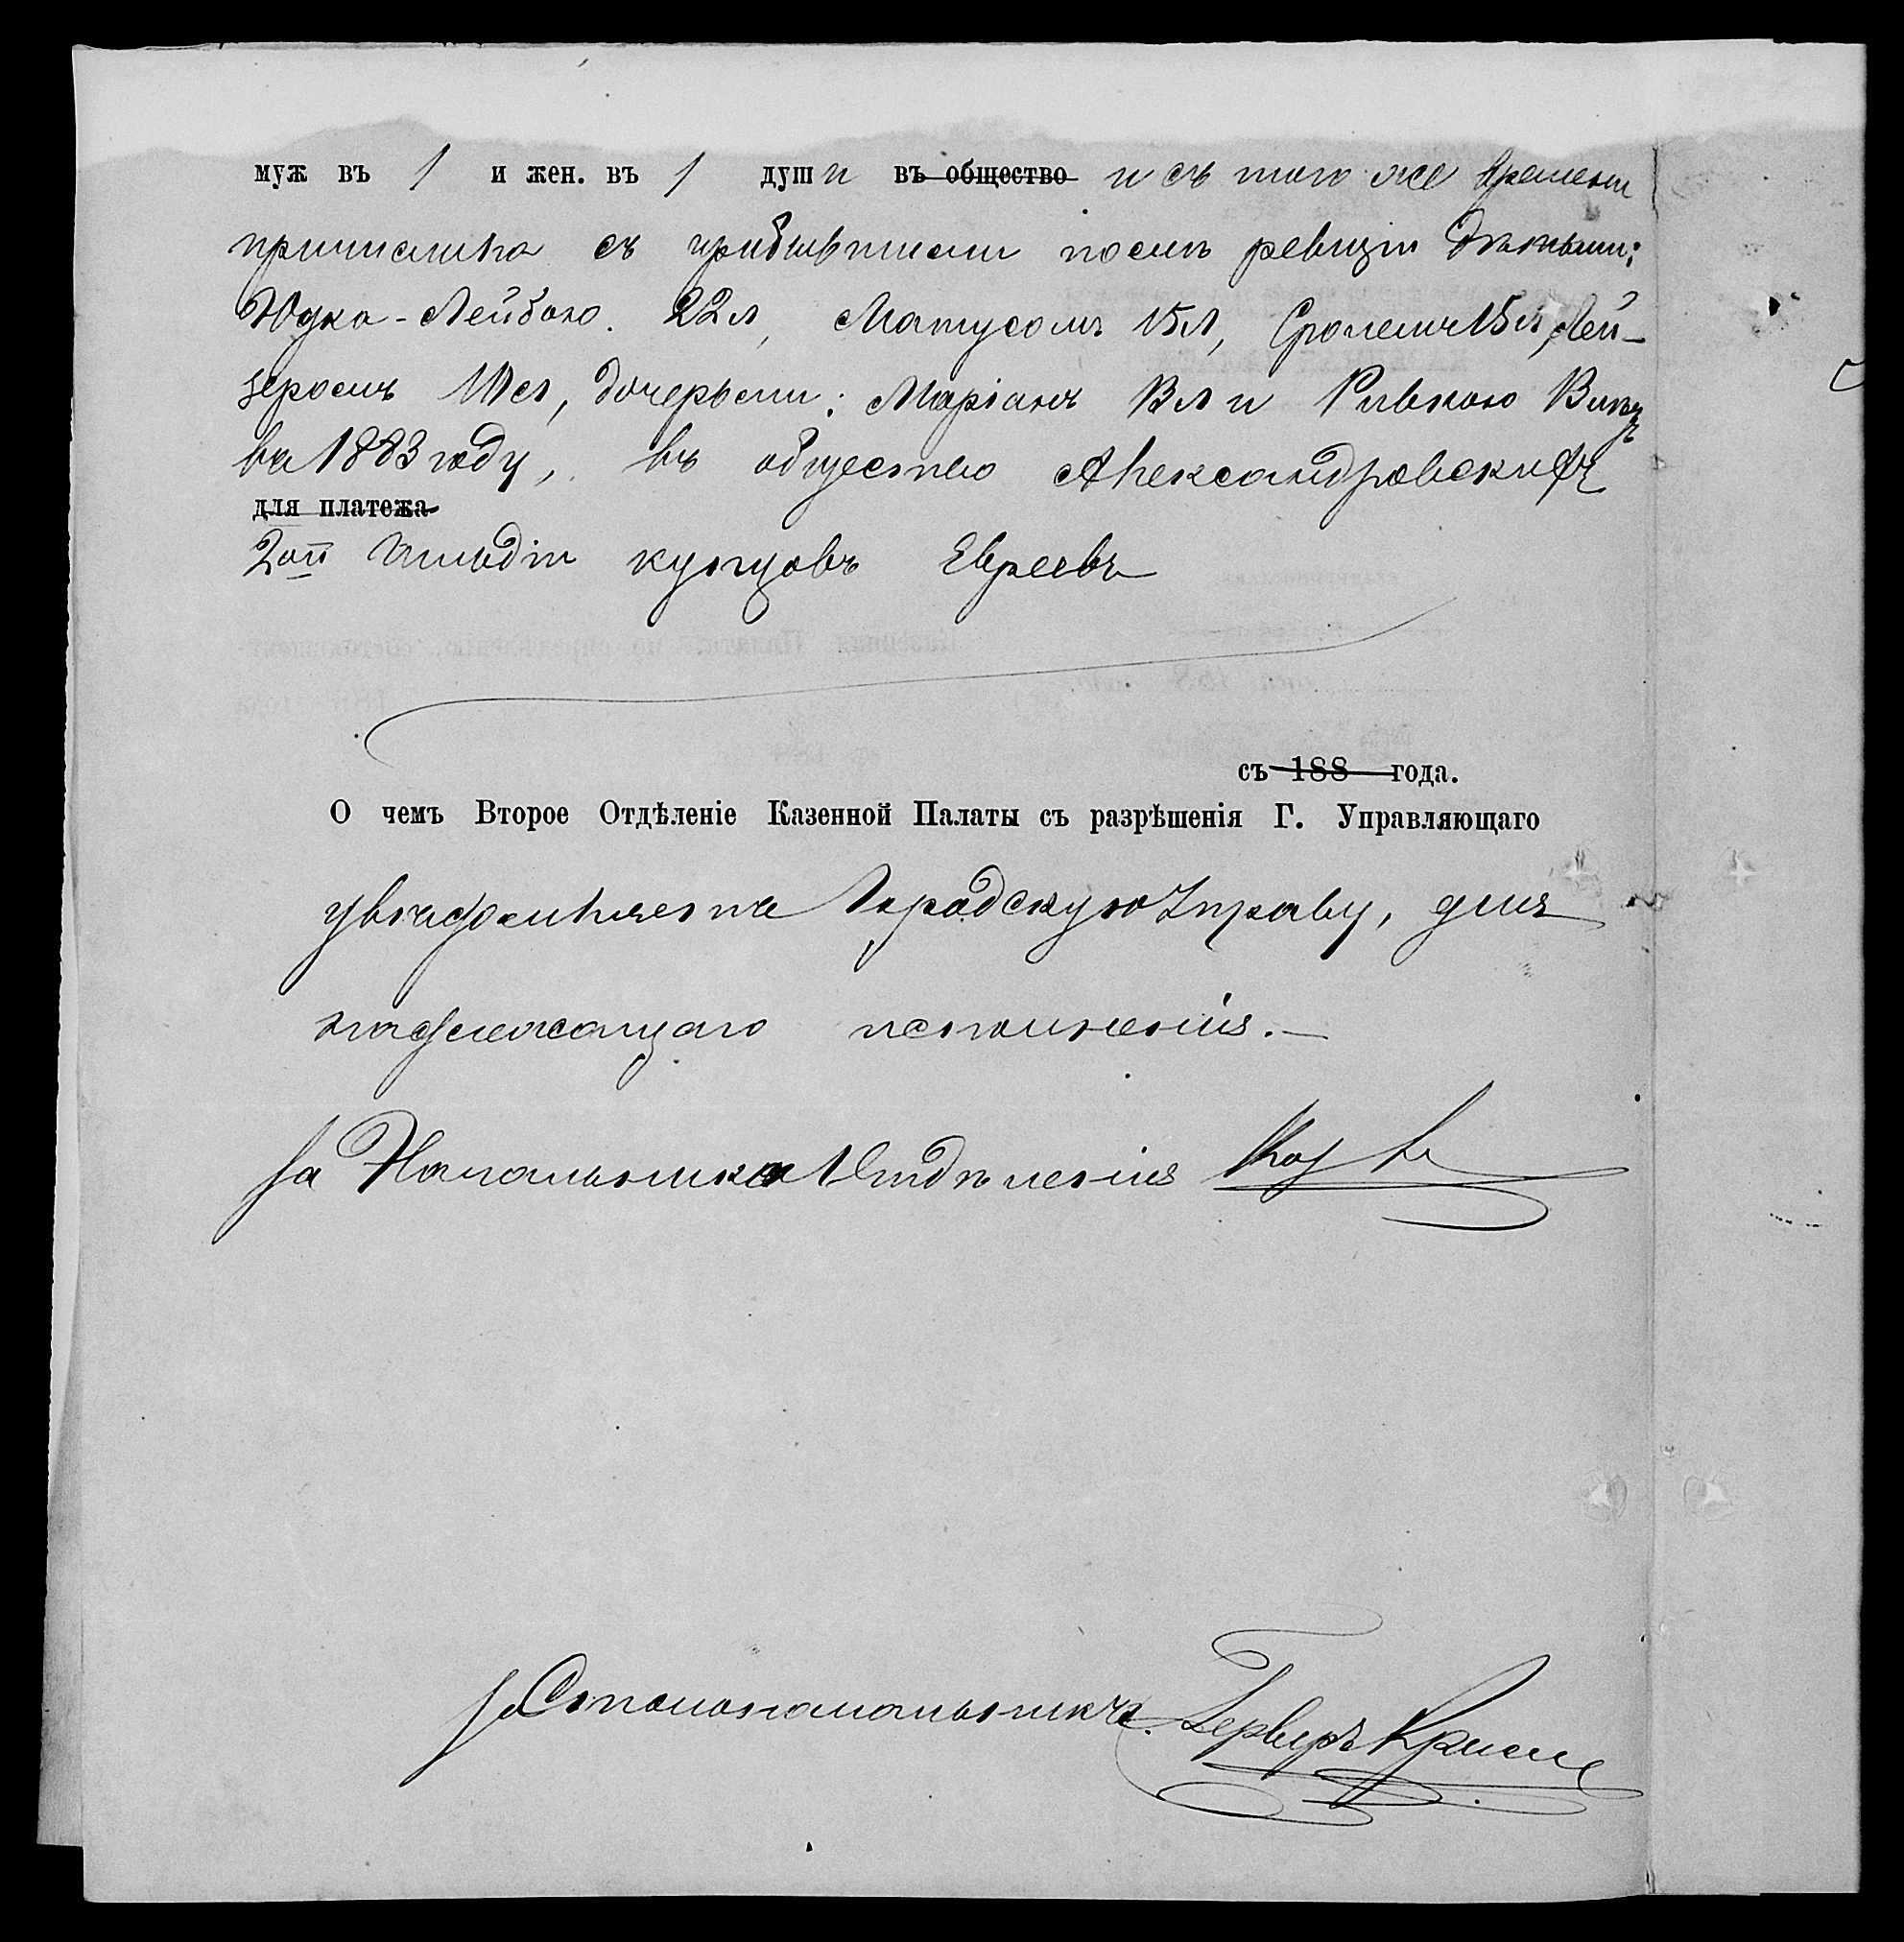 муж въ 1 и жен. въ 1 души въ общество и съ того же времени
причислило съ прибывшими послѣ ревизіи дѣтьми:
Юдко-Лейбою 22 л, Матусомъ 15 л, Сролемъ 15 л, Лей-
зеромъ 10 л, дочерьми: Маріамъ 13 л и Ривкою
въ 1883 году, въ общество Александровскихъ
для платежа
2ой гильдіи купцовъ Евреевъ
съ 188 года.
О чемъ Второе Отдѣленіе Казенной Палаты съ разрѣшенія Г. Управляющаго
увѣдомляетъ Городскую Управу, для
надлежащаго исполненія.—
За Начальника Отдѣленія
За Столоначальника